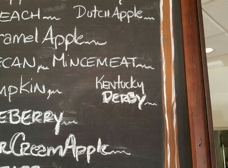 EACH Dutch Apple
aramel Apple
ECAN, MINCEMEAT
mpkin, Kentucky
DERBY
EBERRY
R CREAM Apple